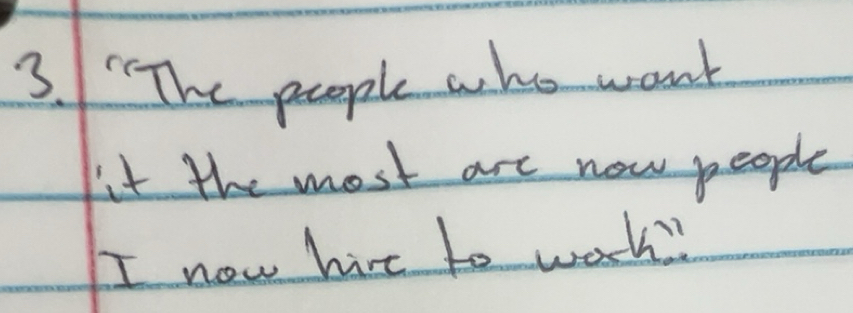 3. "The people who want
it the most are now people
I now hire to work".